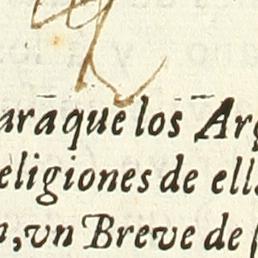 ara que los Arç
eligiones de ell
n, vn Breve de